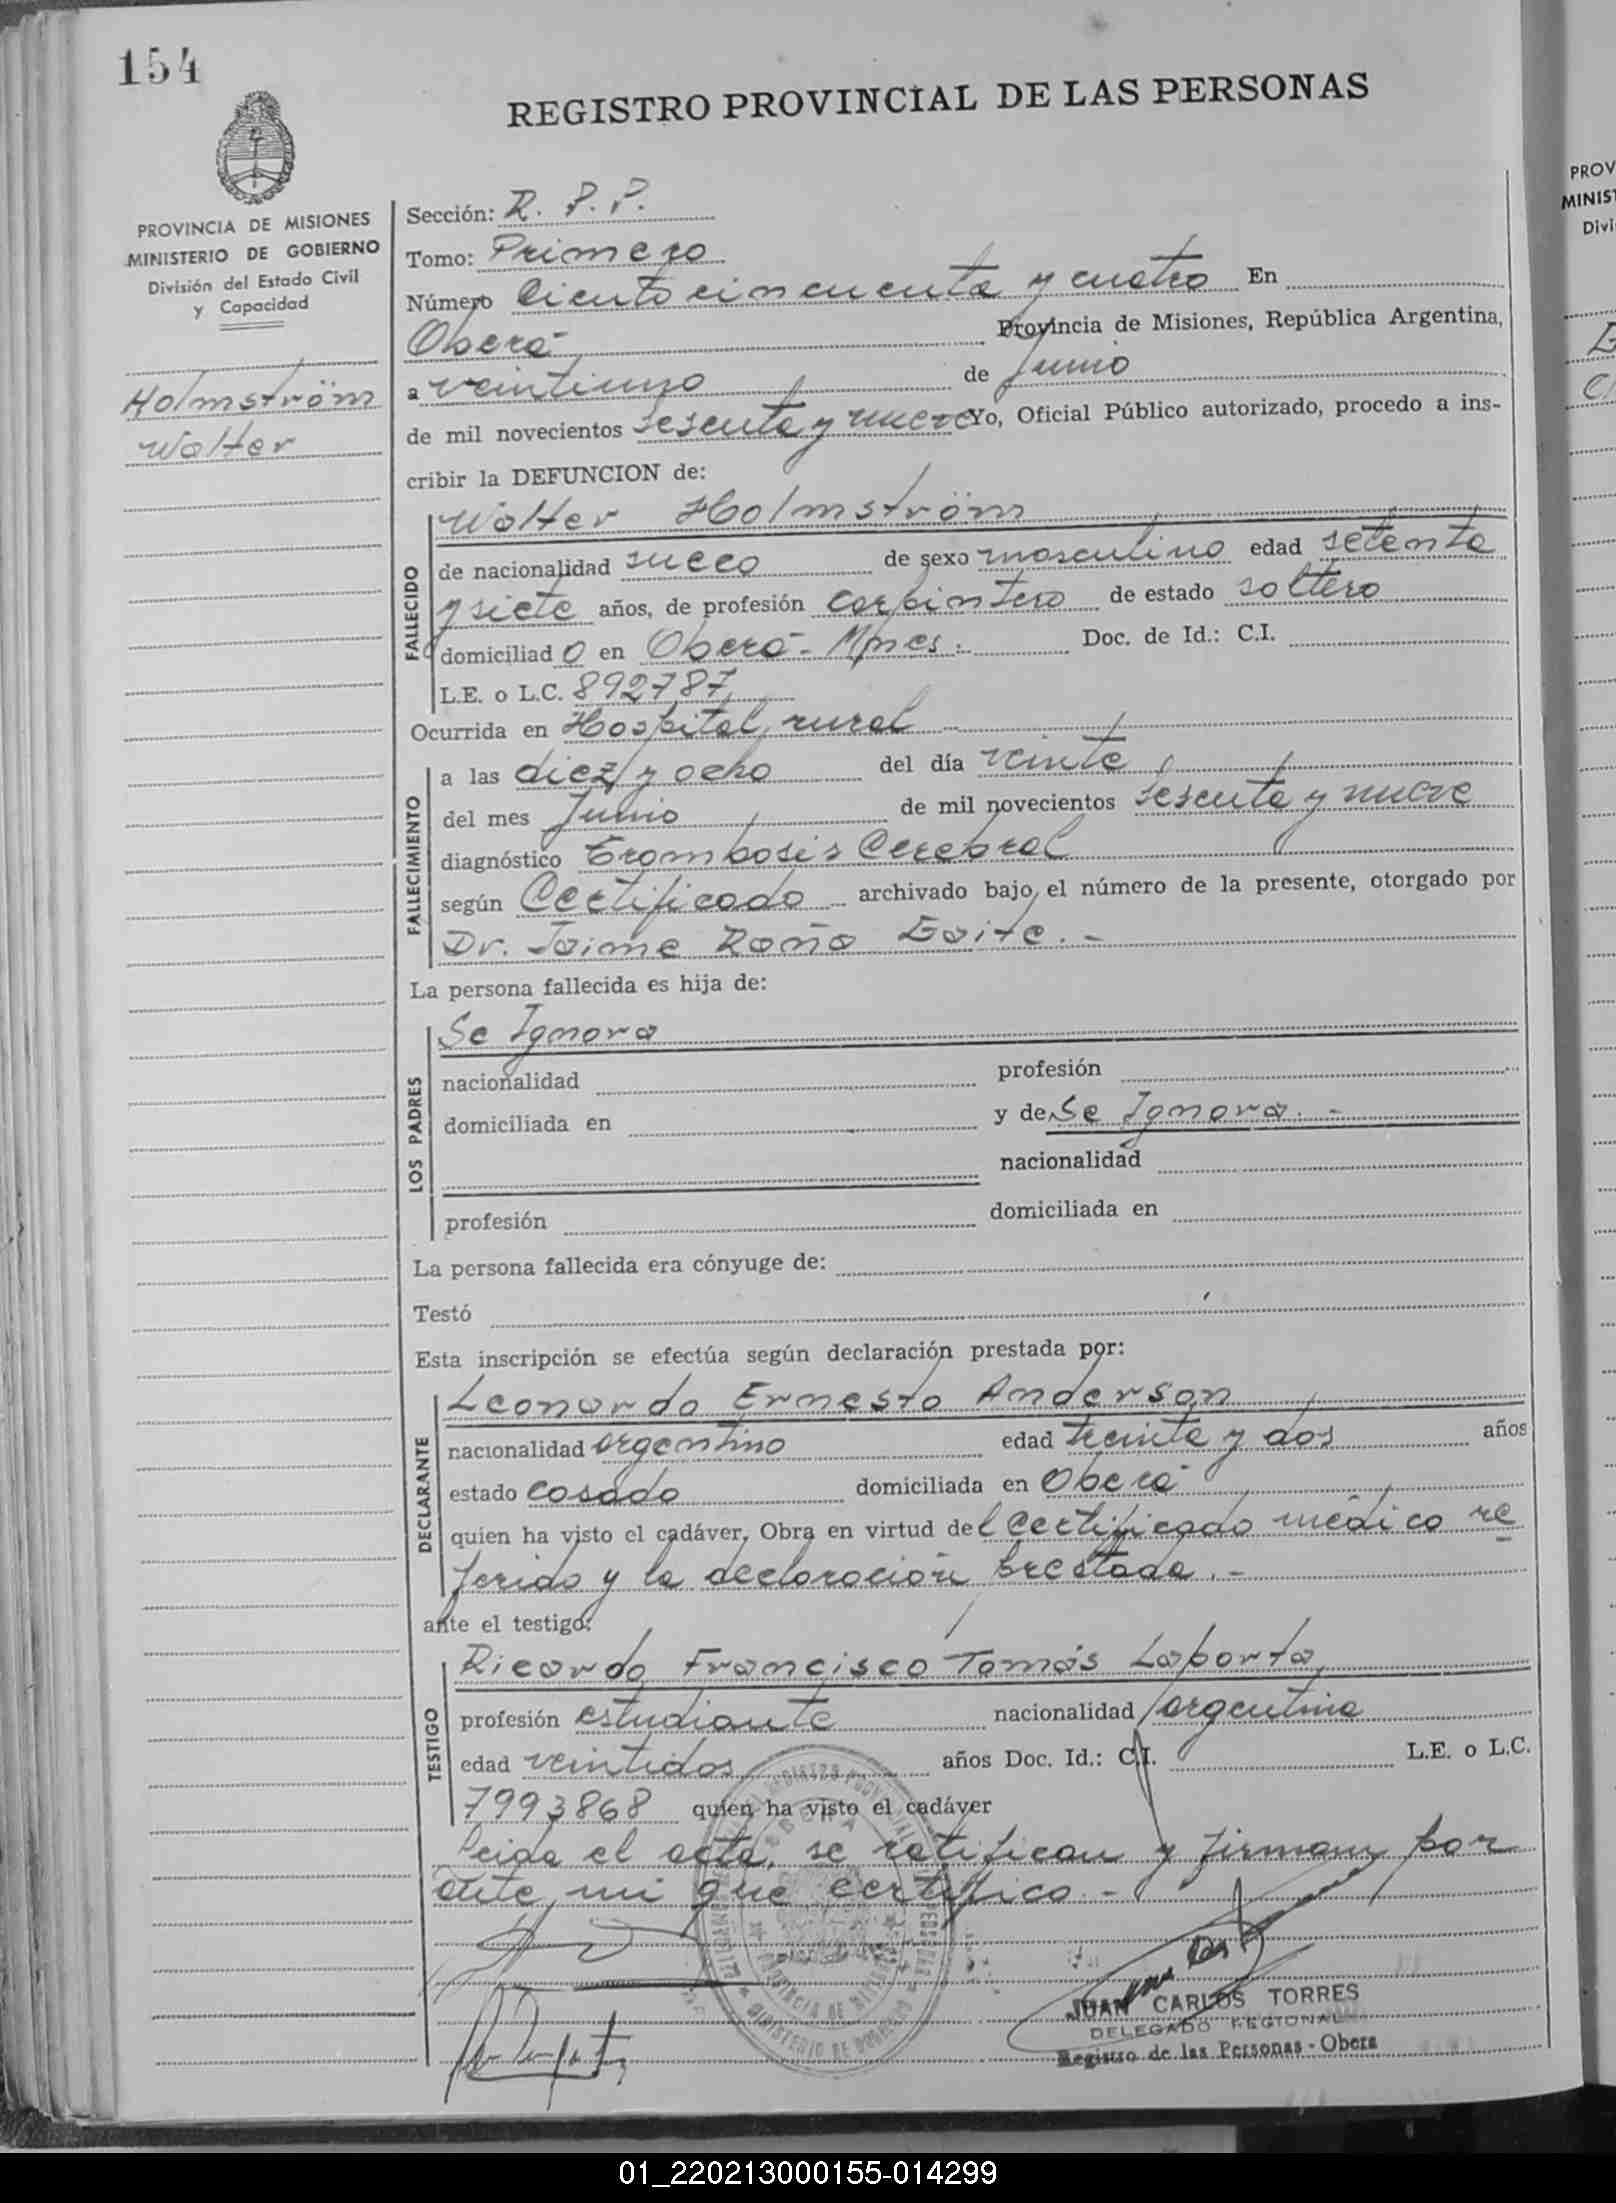 154
REGISTRO PROVINCIAL DE LAS PERSONAS
PROVINCIA DE MISIONES
MINISTERIO DE GOBIERNO
División del Estado Civil
y Capacidad
Holmström
Walter
Sección: R. P. P.
Tomo: Primero
Número Ciento cincuenta y cuatro En
Oberá Provincia de Misiones, República Argentina,
a veintiuno de Junio
de mil novecientos sesenta y nueve Yo, Oficial Público autorizado, procedo a ins-
cribir la DEFUNCION de:
FALLECIDO
Walter Holmström
de nacionalidad sueco de sexo masculino edad setenta
y siete años, de profesión carpintero de estado soltero
domiciliado en Oberá - Mnes. Doc. de Id.: C.I.
L.E. o L.C. 892787
Ocurrida en Hospital rural
FALLECIMIENTO
a las diez y ocho del día veinte
del mes Junio de mil novecientos sesenta y nueve
diagnóstico Trombosis Cerebral
según Certificado archivado bajo el número de la presente, otorgado por
Dr. Jaime
La persona fallecida es hija de:
LOS PADRES
Se Ignora
nacionalidad profesión
domiciliada en y de Se Ignora. -
nacionalidad
profesión domiciliada en
La persona fallecida era cónyuge de:
Testó
Esta inscripción se efectúa según declaración prestada por:
DECLARANTE
Leonardo Ernesto Anderson
nacionalidad argentino edad treinta y dos años
estado casado domiciliada en Oberá
quien ha visto el cadáver, Obra en virtud del Certificado médico re
ferido y la declaración prestada. -
ante el testigo:
TESTIGO
Ricardo Francisco Tomás Laporta
profesión estudiante nacionalidad argentina
edad veintidos años Doc. Id.: C.I. L.E. o L.C.
7993868 quien ha visto el cadáver
Leida el acta, se ratifican y firman por
ante mi que certifico. -
JUAN CARLOS TORRES
DELEGADO REGIONAL
Registro de las Personas - Obera
PROV
MINIST
Divi
01_220213000155-014299